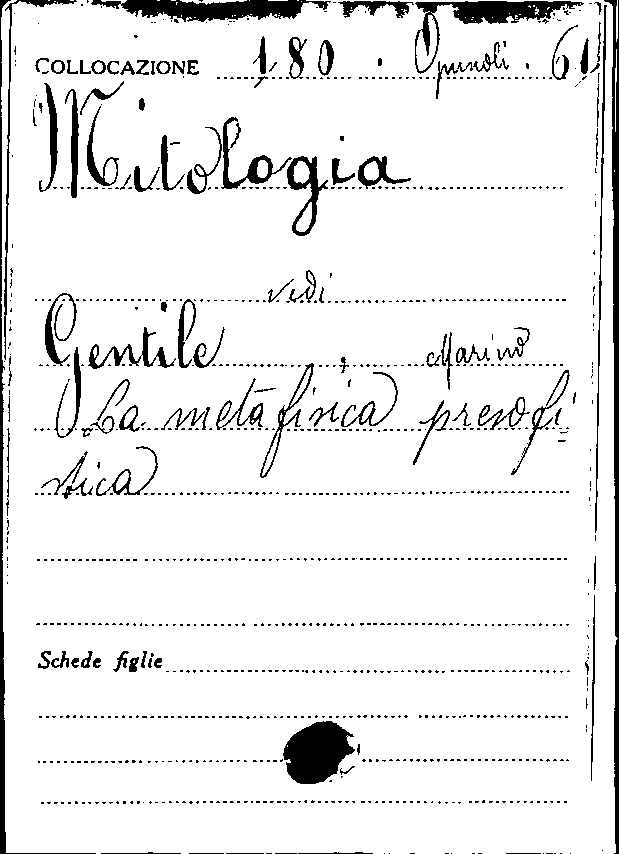 COLLOCAZIONE 180 . Opuscoli . 61
Mitologia
vedi
Gentile , Marino
La metafisica presofi=
stica
Schede figlie